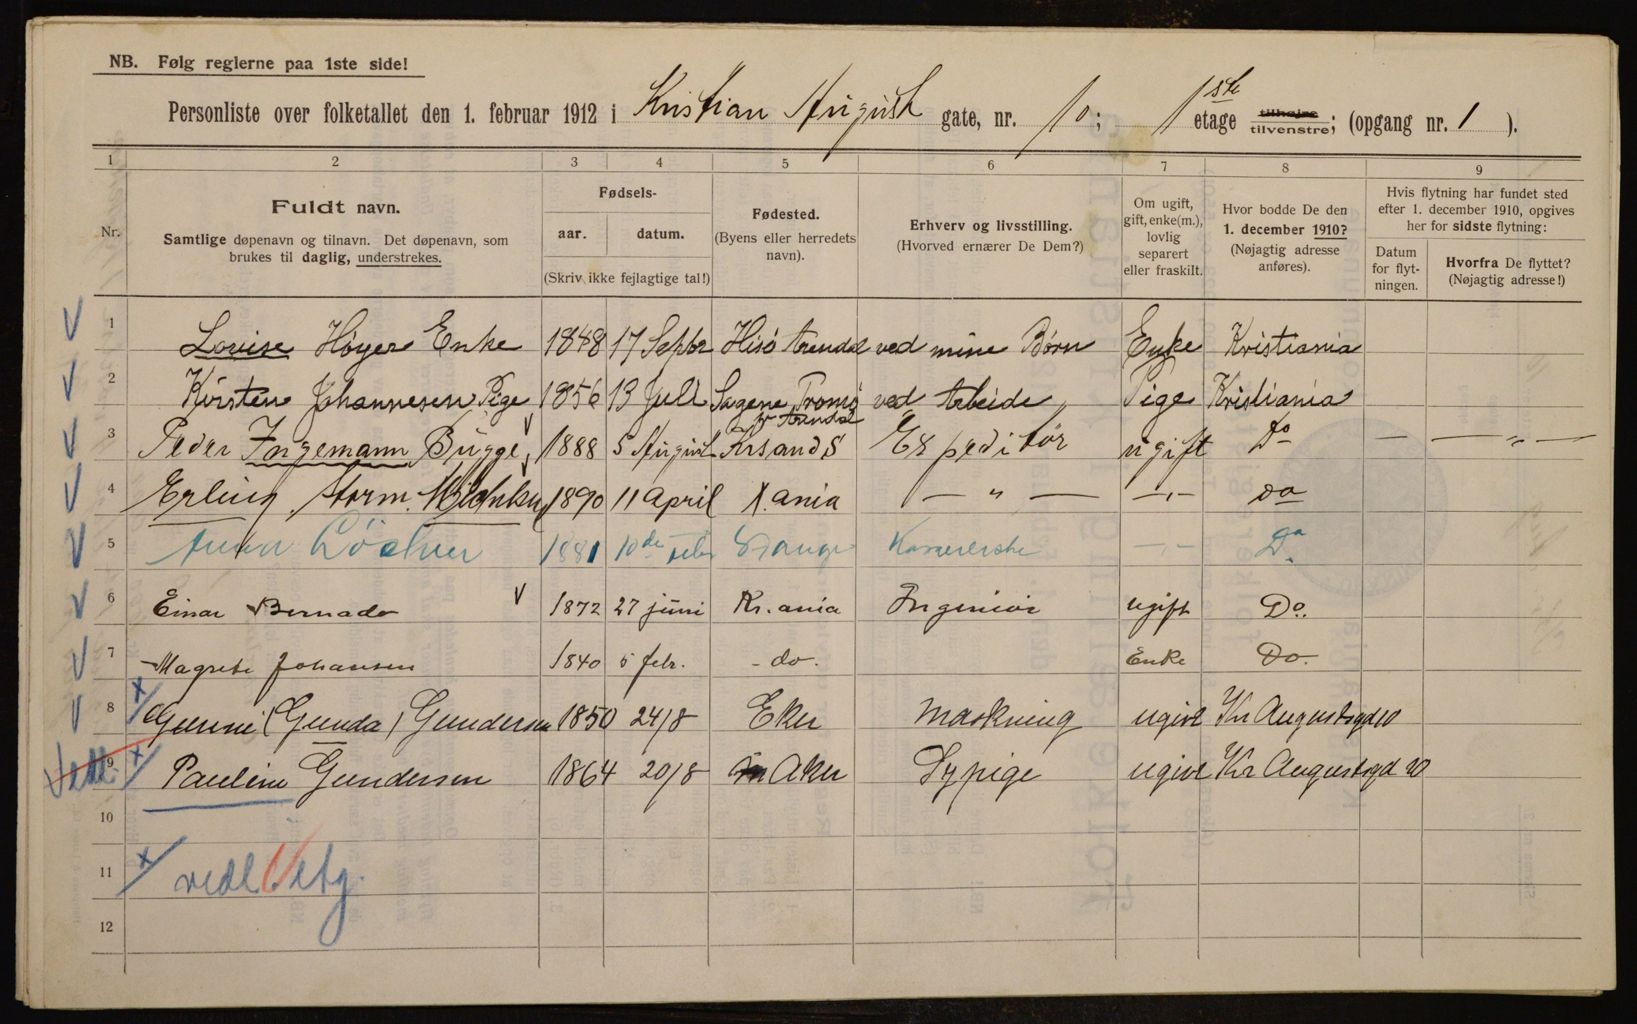 NB. Følg reglerne paa 1ste side!
Personliste over folketallet den 1. februar 1912 i Kristian August gate, nr. 10; 1ste etage tilhøire tilvenstre; (opgang nr. 1 ).
1 2 3 4 5 6 7 8 9
Nr.
Fuldt navn.
Samtlige døpenavn og tilnavn. Det døpenavn, som
brukes til daglig, understrekes.
Fødsels-
aar. datum.
(Skriv ikke feilagtige tal!)
Fødested.
(Byens eller herredets
navn).
Erhverv og livsstilling.
(Hvorved ernærer De Dem?)
Om ugift,
gift, enke(m.),
lovlig
separert
eller fraskilt.
Hvor bodde De den
1. december 1910?
(Nøjagtig adresse
anføres).
Hvis flytning har fundet sted
efter 1. december 1910, opgives
her for sidste flytning:
Datum
for flyt-
ningen.
Hvorfra De flyttet?
(Nøjagtig adresse!)
1 Lovise Høyer Enke 1848 17 Septbr Hisö Arendal ved mine Børn Enke Kristiania
2 Kirsten Johannesen Pige 1856 13 Juli Sagene Tromö pr Arendal ved Arbeide Pige Kristiania
3 Peder Ingemann Bugge 1888 5 August Krsands Expeditør ugift Do — — „ —
4 Erling Storm 1890 11 april X.ania — „ — — „ — do
5 1881 10de — „ — Do
6 Einar Bernado 1872 27 juni Kr.ania Ingeniør ugift Do.
7 Magrete Johansen 1840 5 febr. - do. Enke Do.
8 Gunni (Gunda) Gundersen 1850 24/8 Eker Maskning ugivt Kr Augustsgd 10
9 Pauline Gundersen 1864 20/8 Aker Sypige ugivt Kr Augustsgd 10
10
11 x/ vedl etg.
12